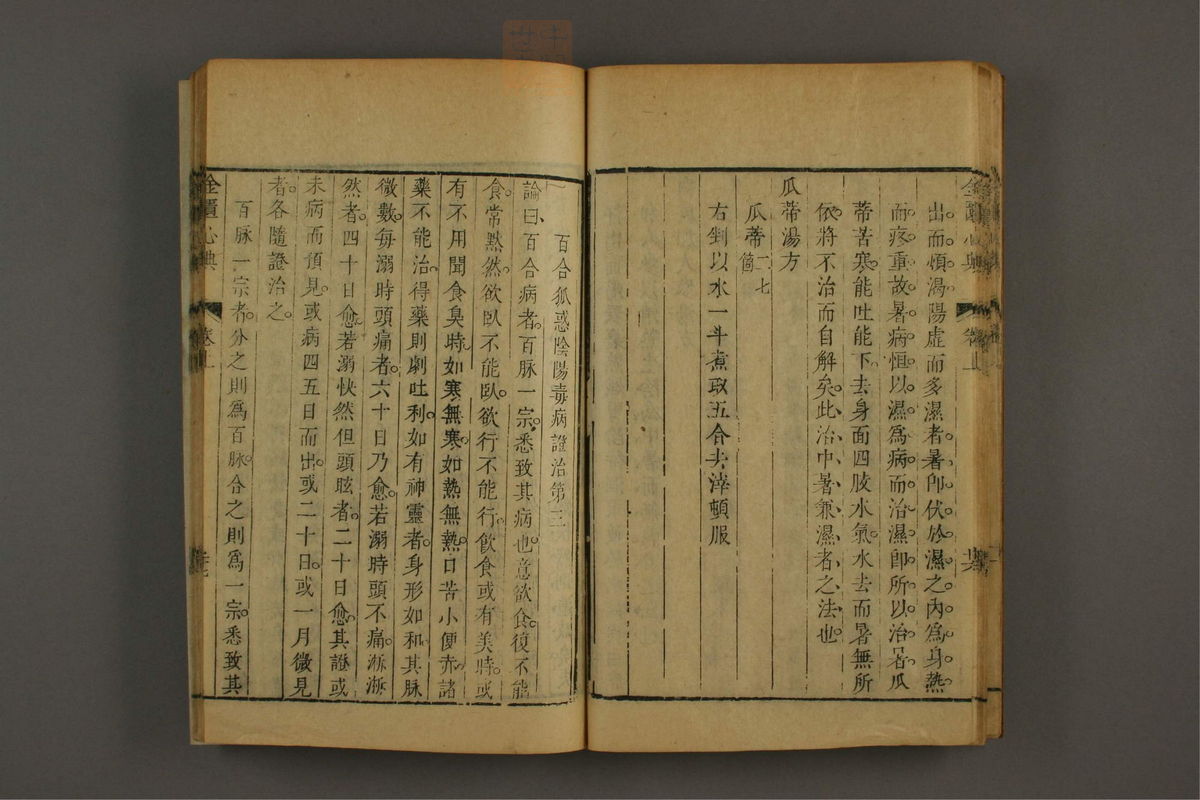 金匱心典
卷上
出而煩渴陽虛而多濕者暑卽伏於濕之內爲身熱
而疼重故暑病恒以濕爲病而治濕卽所以治暑瓜
蒂苦寒能吐能下去身面四肢水氣水去而暑無所
依將不治而自解矣此治中暑兼濕者之法也
瓜蒂湯方
瓜蒂二七箇
右剉以水一斗煮取五合去滓頓服
百合狐惑陰陽毒病證治第三
論曰百合病者百脉一宗悉致其病也意欲食復不能
食常默然欲臥不能臥欲行不能行飲食或有美時或
有不用聞食臭時如寒無寒如熱無熱口苦小便赤諸
藥不能治得藥則劇吐利如有神靈者身形如和其脉
微數每溺時頭痛者六十日乃愈若溺時頭不痛淅淅
然者四十日愈若溺快然但頭眩者二十日愈其證或
未病而預見或病四五日而出或二十日或一月微見
者各隨證治之
百脉一宗者分之則爲百脉合之則爲一宗悉致其
金匱心典
卷上